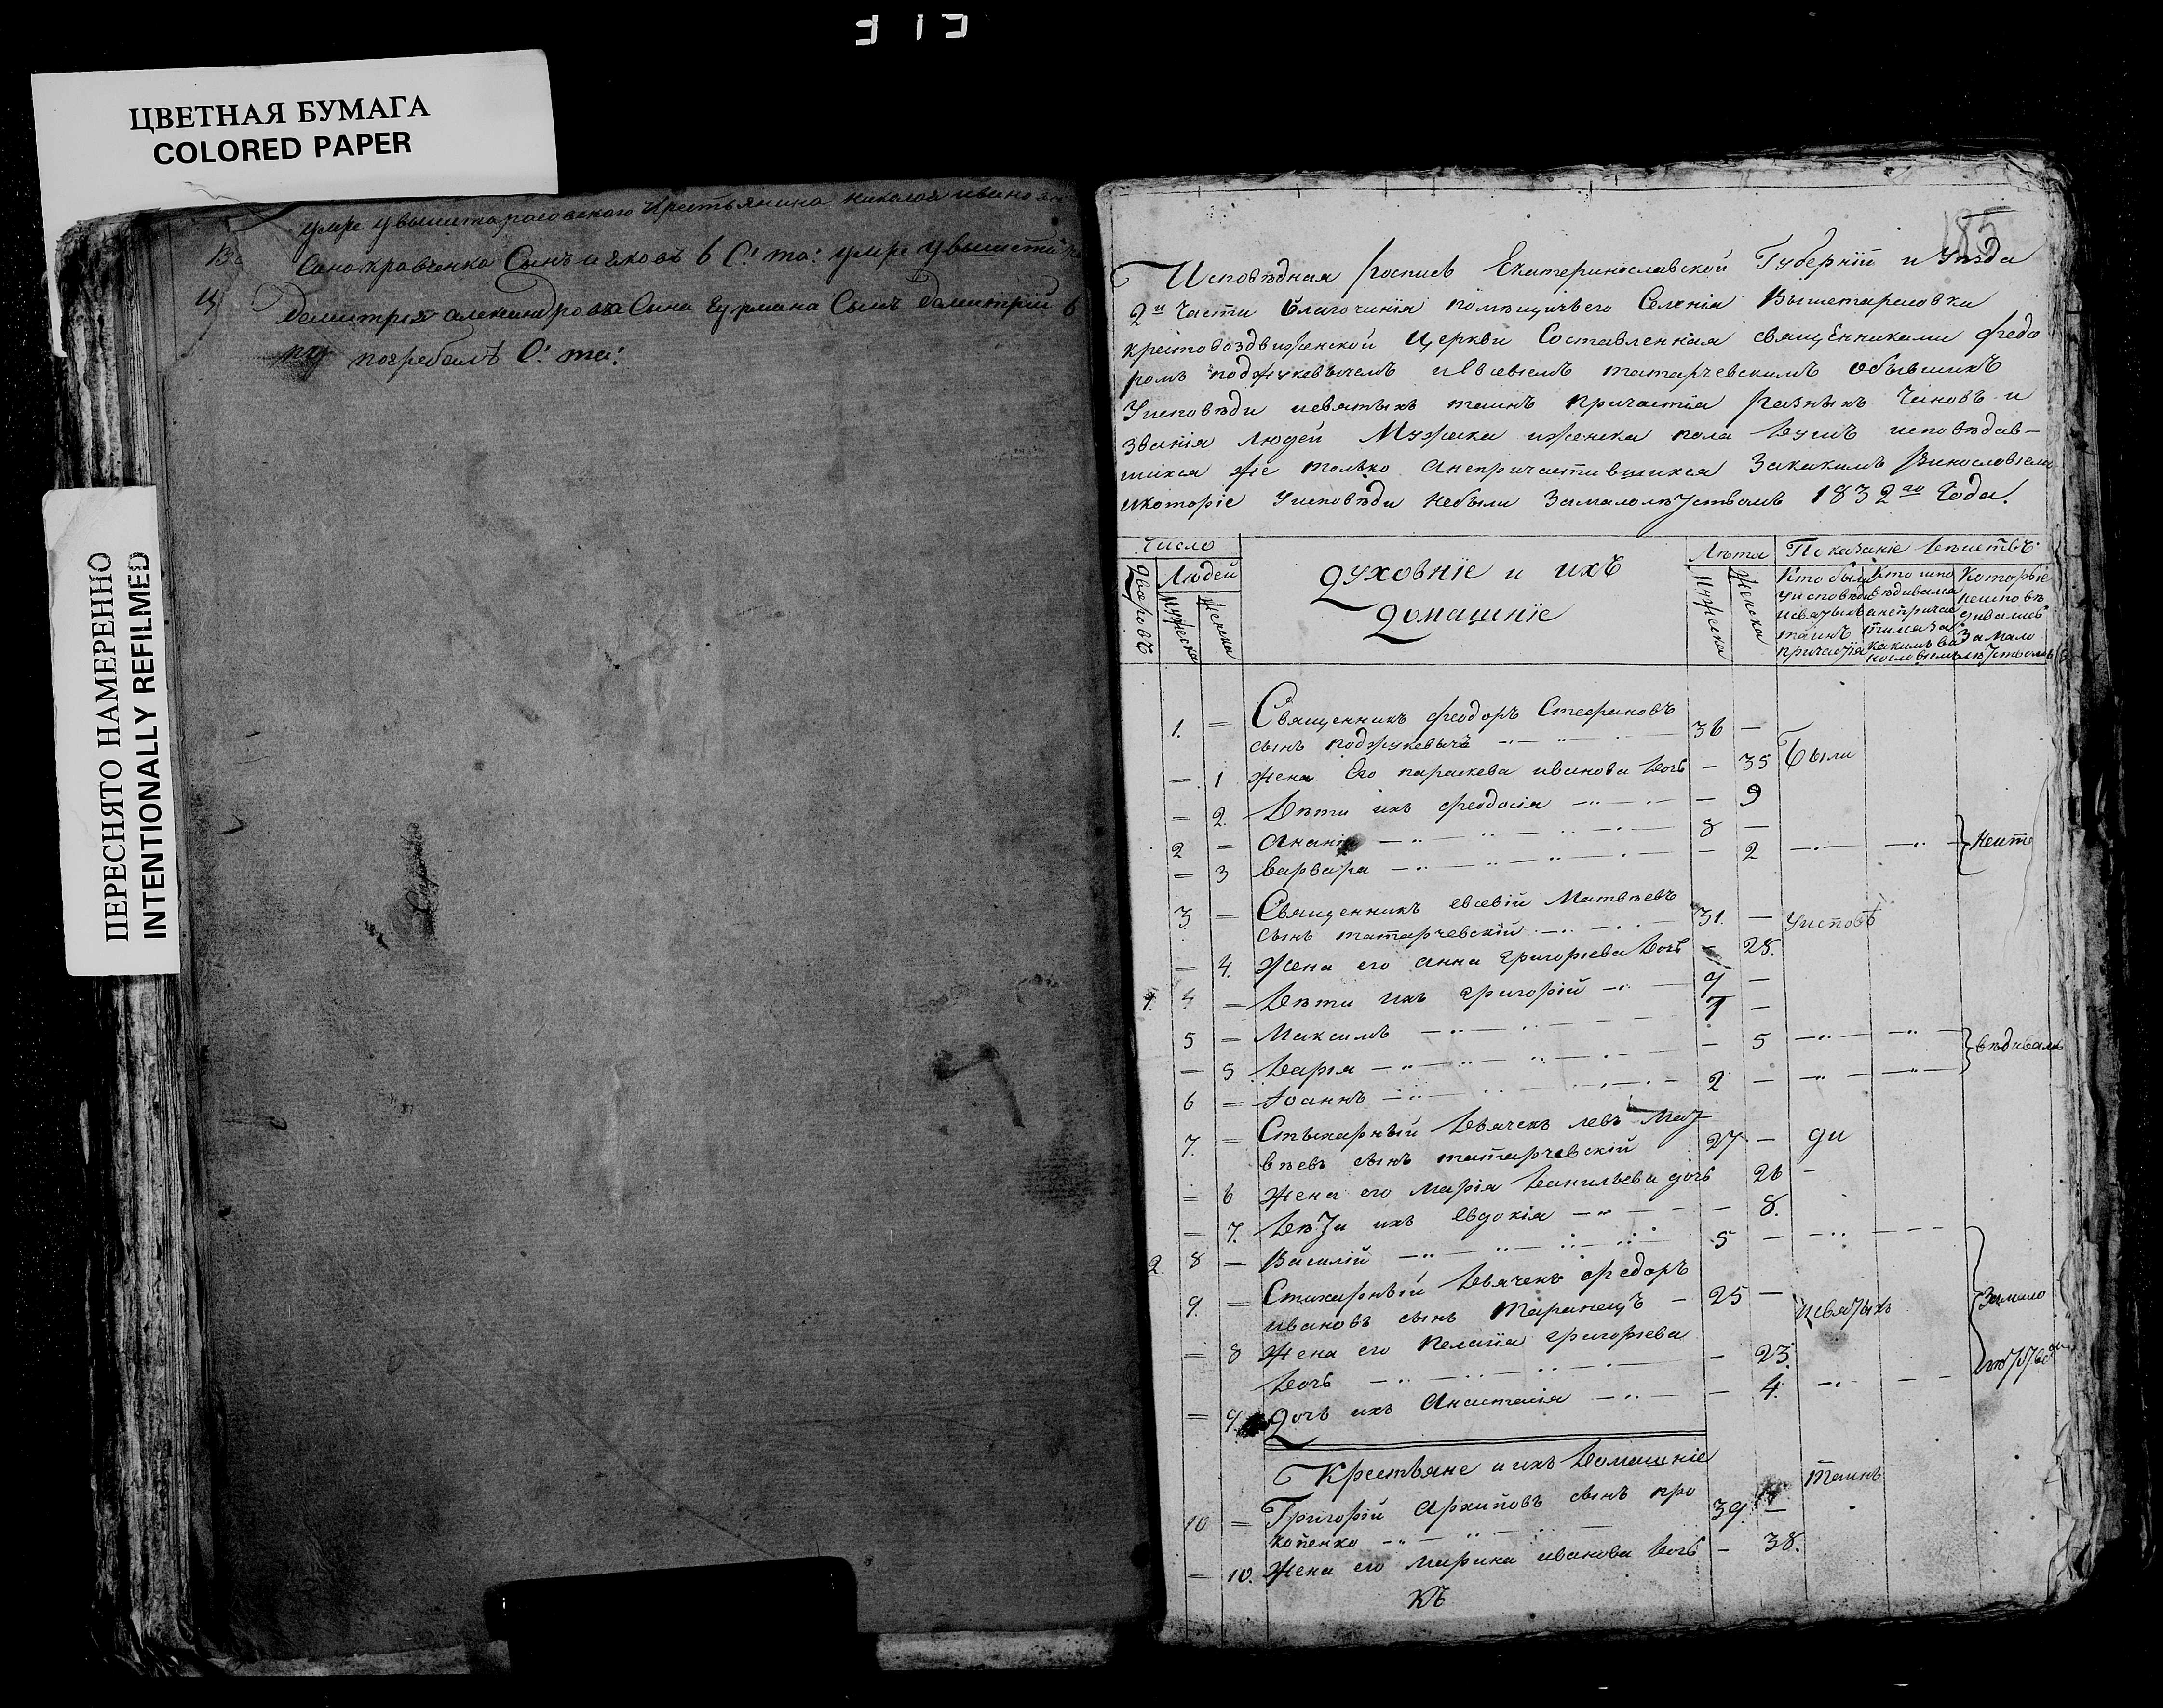 319
ЦВЕТНАЯ БУМАГА
COLORED PAPER
ПЕРЕСНЯТО НАМЕРЕННО
INTENTIONALLY REFILMED
умре у вышетарасовского крестьянина николая иванова
13 Сина кравченка Сынъ иаковъ 6 С: та: умре у вышетар
14 Димитрія александрова Сына Сынъ димитрій 6
погребалъ С: та:
185
Исповѣдная роспись Екатеринославской Губерніи и Уѣзда
2й Части благочинія помѣщичьего Селенія Вышетарасовки
крестовоздвиженской Церкви Составленная священниками федо
ромъ поджукевичемъ и Евсевіемъ татарчевскимъ объвшихъ
Уисповѣди исвятыхъ таинъ причастія разныхъ Чиновъ и
званія людей Мужеска иженска пола Душъ исповѣдав-
шихся же только анепричастившихся Закакимъ винословіемъ
икоторіе Уисповѣди небыли Замалолѣтствомъ 1832го Года.
Число
Дворовъ
Людей
Мужеска
Женска
Духовніе и ихъ
Домашніе
Лѣта
Мужеска
Женска
Показаніе Дѣйствъ
Кто былъ
Уисповѣди
исвятыхъ
таинъ
причастія
Кто испо
вѣдывался
анепричас
тился за
какимъ ви
нословіемъ
Которые
неисповѣ
дывались
Замало
лѣтствомъ
1. = Священникъ феодоръ Стефановъ
сынъ поджукевичъ 36 —
— 1 Жена Его параскева иванова Дочь — 35 Были
— 2. Дѣти ихъ феодосія — 9
2 = Ананія 8 —
— 3 варвара — 2 Неисто
3 = Священникъ евсевій Матвѣевъ
Сынъ татарчевскій 31. — Уисповѣ
— 4. Жена его анна григорьева Дочь — 28.
1. 4 = Дѣти ихъ григорій 9 —
5 = Максимъ 7 —
— 5 Дарія — 5 вѣдивали
6 = Іоаннъ 2 —
7. = Стыхарный Дьячекъ левъ Мат
вѣевъ сынъ татарчевскій 27 — ди
= 6 Жена его Марія Данильева дочь 26 —
— 7. Дѣти ихъ Евдокія — 8.
2. 8 — Василій 5 —
9. = Стихарный Дьячекъ федоръ
ивановъ сынъ таранецъ — 25 — исвятыхъ Замало
= 8 Жена его Пелагія григорьева
Дочь — 23. лѣтство
= 9. Дочь ихъ Анастасія — 4.
Крестьяне и ихъ Домашніе
Таинъ
10 = Григорій Архиповъ сынъ про
копенко 39. —
— 10. Жена его Марина иванова Дочь — 38.
КЪ